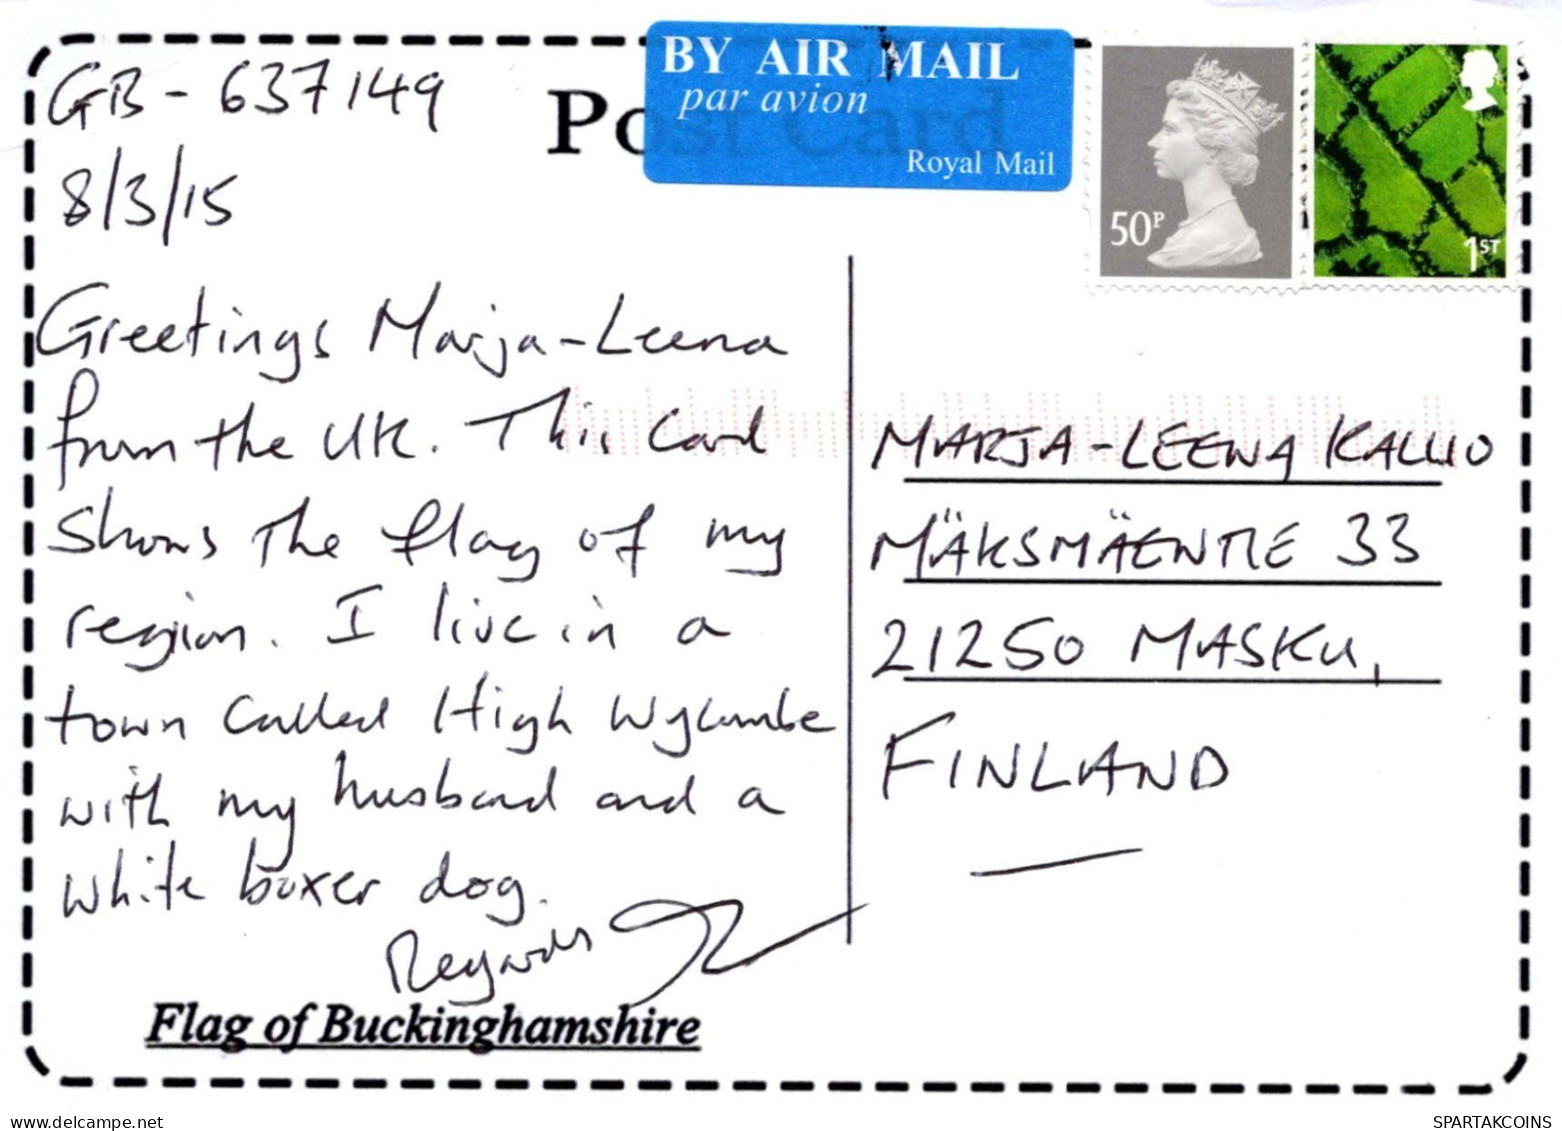 GB - 637149
8/3/15
Post Card
BY AIR MAIL
par avion
Royal Mail
50P
1ST
Greetings Marja-Leena
from the UK. This card
shows the flag of my
region. I live in a
town called High Wycombe
with my husband and a
white boxer dog.
Regards
Flag of Buckinghamshire
MARJA-LEENA KALLIO
MÄKSMÄENTIE 33
21250 MASKU,
FINLAND
delcampe.net
SPARTAKCOINS